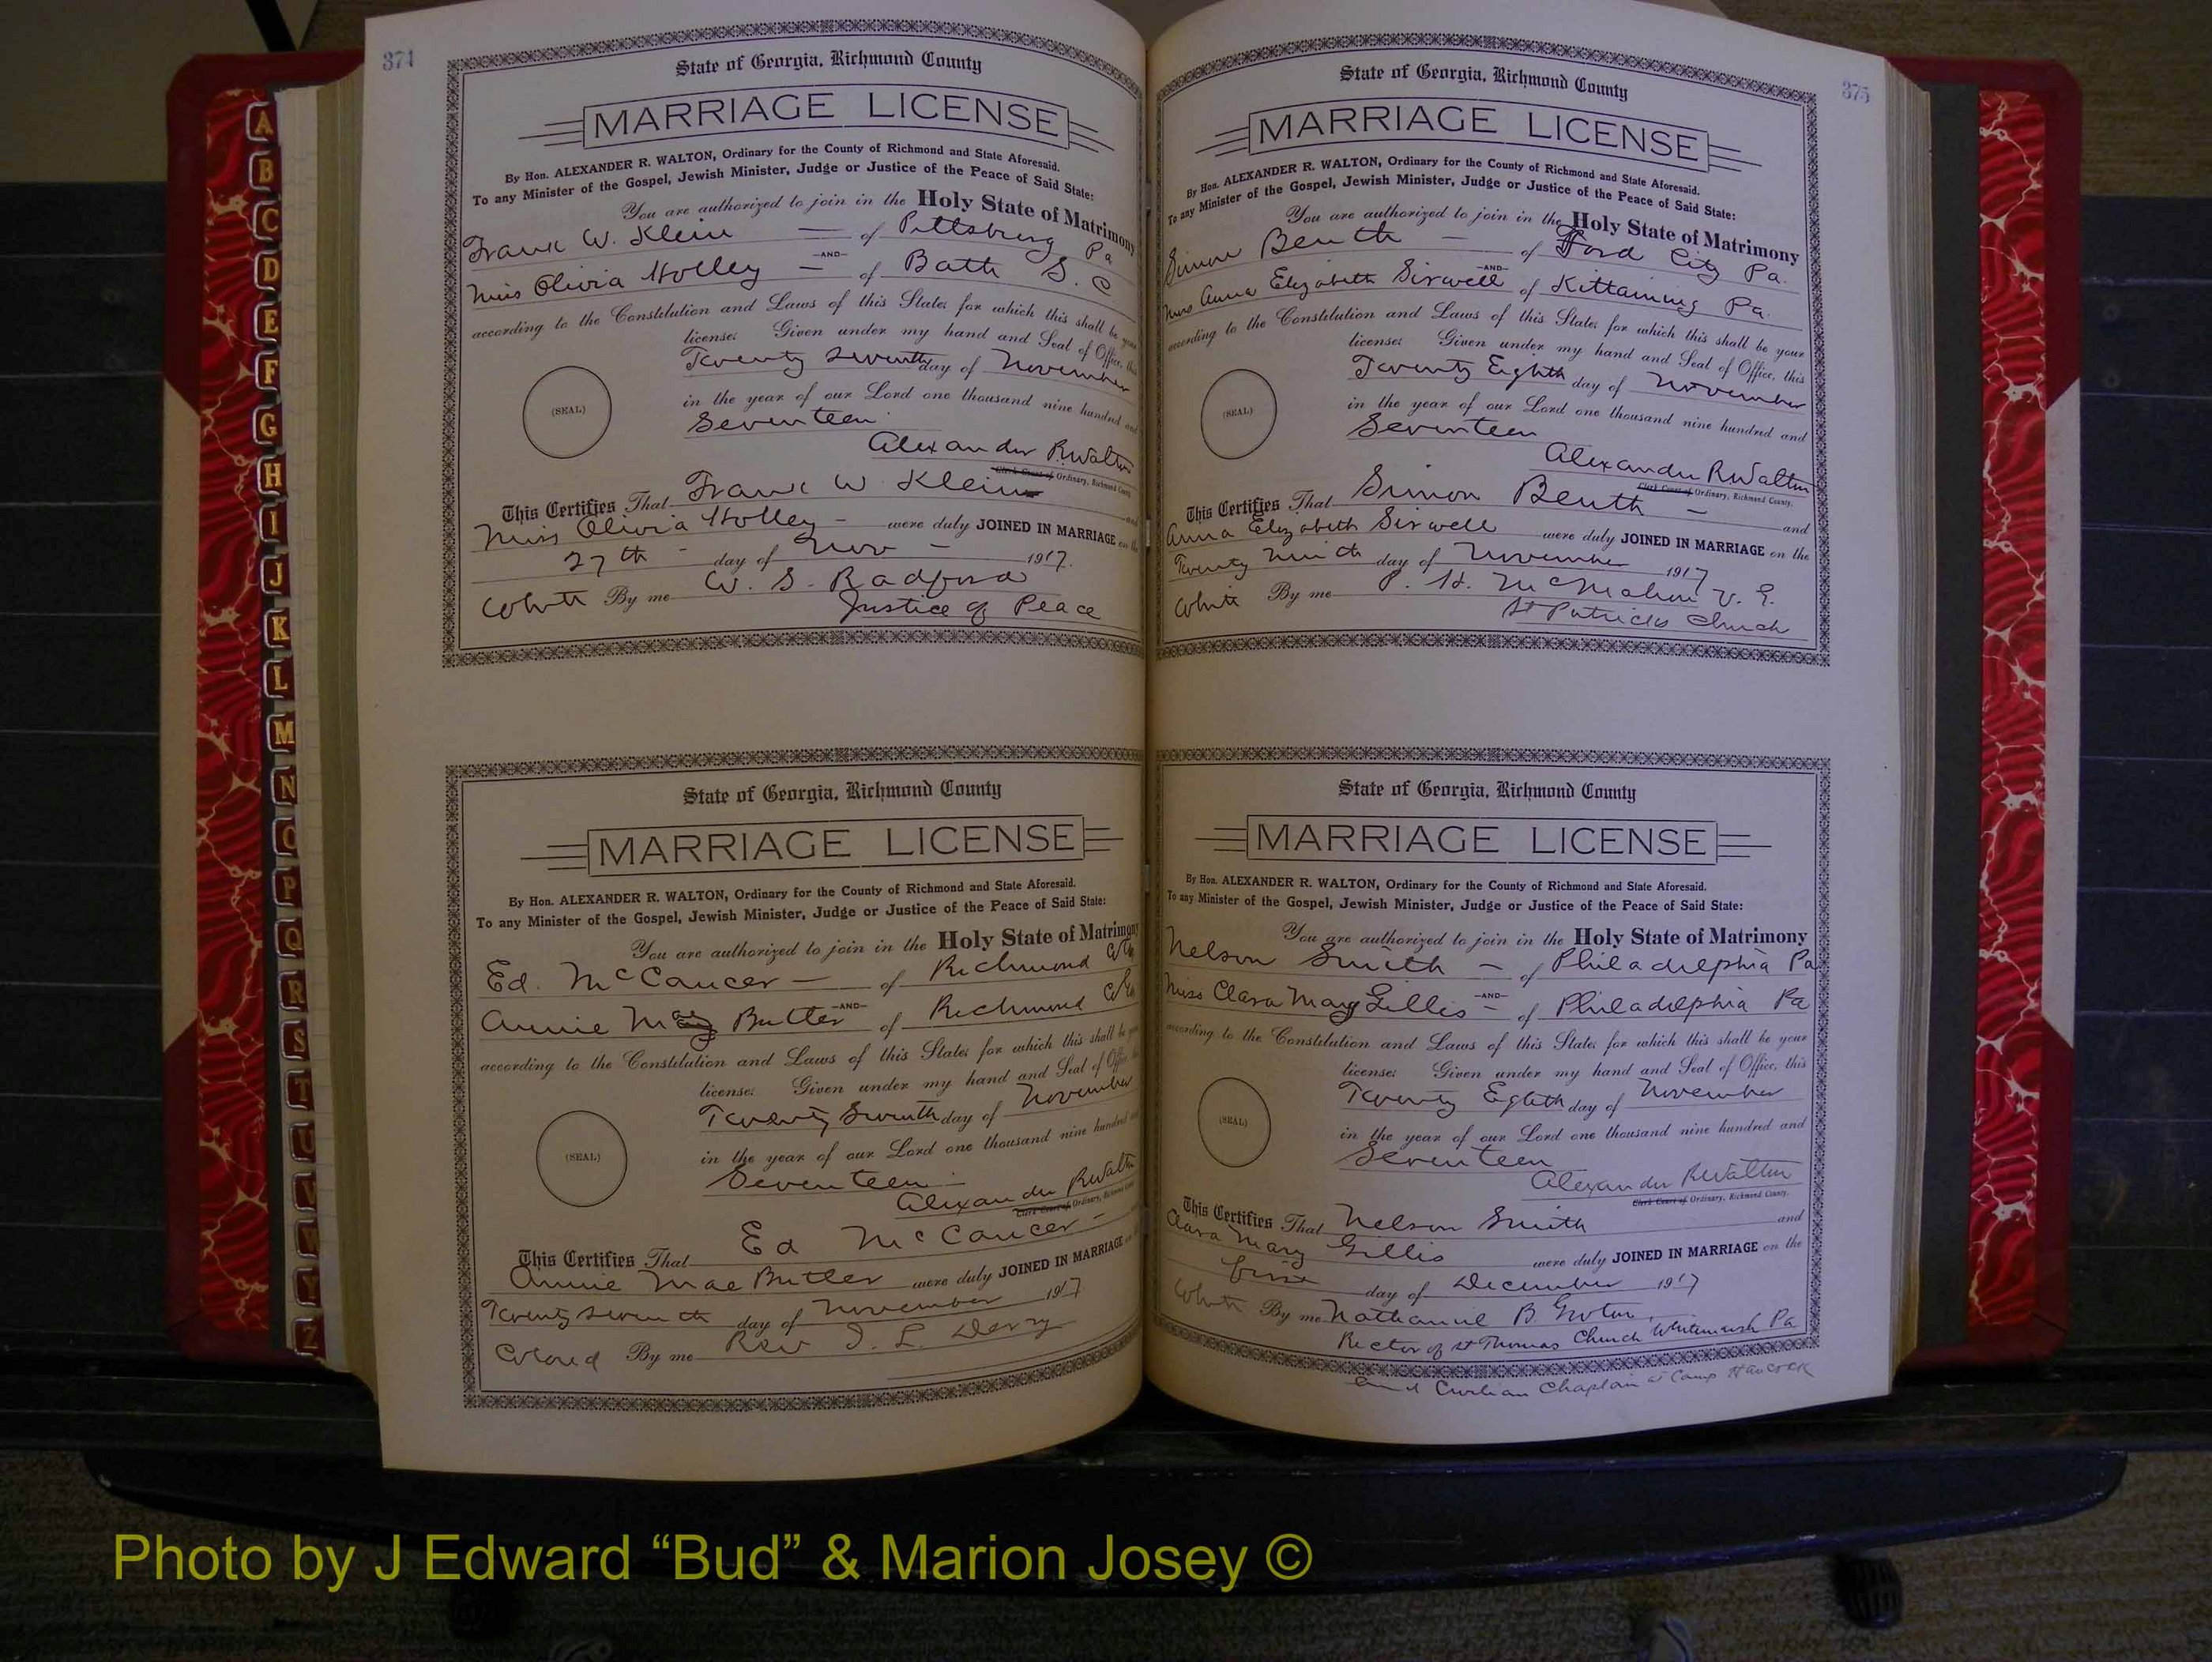 374
State of Georgia, Richmond County
MARRIAGE LICENSE
By Hon. ALEXANDER R. WALTON, Ordinary for the County of Richmond and State Aforesaid.
To any Minister of the Gospel, Jewish Minister, Judge or Justice of the Peace of Said State:
You are authorized to join in the Holy State of Matrimony
Frank W. Klein — of Pittsburg Pa
—AND—
Miss Olivia Holley — of Bath S. C
according to the Constitution and Laws of this State; for which this shall be your
license: Given under my hand and Seal of Office, this
Twenty Seventh day of November
in the year of our Lord one thousand nine hundred and
(SEAL)
Seventeen
Alexander R Walton
Clerk Court of Ordinary, Richmond County
This Certifies That Frank W Klein and
Miss Olivia Holley — were duly JOINED IN MARRIAGE on the
27th day of Nov 1917.
White By me W. S. Radford
Justice of Peace
State of Georgia, Richmond County
MARRIAGE LICENSE
By Hon. ALEXANDER R. WALTON, Ordinary for the County of Richmond and State Aforesaid.
To any Minister of the Gospel, Jewish Minister, Judge or Justice of the Peace of Said State:
You are authorized to join in the Holy State of Matrimony
Ed. McCancer — of Richmond
—AND—
Annie Butler of Richmond
according to the Constitution and Laws of this State; for which this shall be your
license: Given under my hand and Seal of Office, this
Twenty Seventh day of November
in the year of our Lord one thousand nine hundred and
(SEAL)
Seventeen
Alexander R Walton
Clerk Court of Ordinary, Richmond County
This Certifies That Ed McCancer
Annie Mae Butler were duly JOINED IN MARRIAGE on
Twenty seventh day of November 1917
Colored By me Rev
375
State of Georgia, Richmond County
MARRIAGE LICENSE
By Hon. ALEXANDER R. WALTON, Ordinary for the County of Richmond and State Aforesaid.
To any Minister of the Gospel, Jewish Minister, Judge or Justice of the Peace of Said State:
You are authorized to join in the Holy State of Matrimony
Simon Beuth — of Ford City Pa.
—AND—
Miss Anna Elizabeth Sirwell of Kittanning Pa.
according to the Constitution and Laws of this State; for which this shall be your
license: Given under my hand and Seal of Office, this
Twenty Eighth day of November
in the year of our Lord one thousand nine hundred and
(SEAL)
Seventeen
Alexander R Walton
Clerk Court of Ordinary, Richmond County.
This Certifies That Simon Beuth — and
Anna Elizabeth Sirwell were duly JOINED IN MARRIAGE on the
Twenty Ninth day of November 1917
White By me P. H. McMahon
St Patricks Church
State of Georgia, Richmond County
MARRIAGE LICENSE
By Hon. ALEXANDER R. WALTON, Ordinary for the County of Richmond and State Aforesaid.
To any Minister of the Gospel, Jewish Minister, Judge or Justice of the Peace of Said State:
You are authorized to join in the Holy State of Matrimony
Nelson Smith — of Philadelphia Pa
—AND—
Miss Clara Mary Gillis — of Philadelphia Pa
according to the Constitution and Laws of this State; for which this shall be your
license: Given under my hand and Seal of Office, this
Twenty Eighth day of November
in the year of our Lord one thousand nine hundred and
(SEAL)
Seventeen
Alexander R Walton
Clerk Court of Ordinary, Richmond County.
This Certifies That Nelson Smith and
Clara Mary Gillis were duly JOINED IN MARRIAGE on the
day of December 1917
White By me Nathaniel B. Groton,
Rector of St Thomas Church Whitemarsh Pa
and Civilian Chaplain at Camp Hancock
A
B
C
D
E
F
G
H
I
J
K
L
M
N
O
P
Q
R
S
T
U
V
W
Y
Z
Photo by J Edward “Bud” & Marion Josey ©